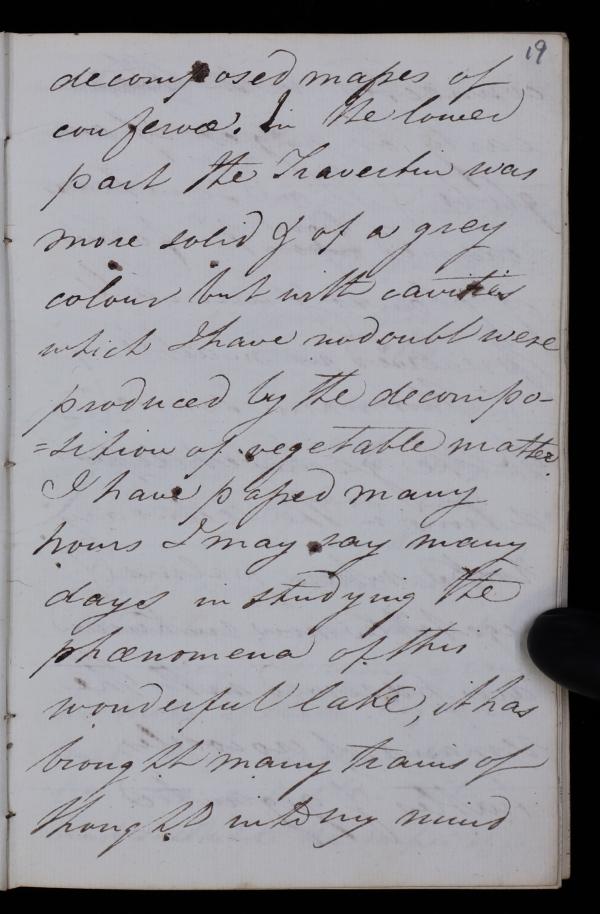 19
decomposed masses of
confervæ. In the lower
part the Travertin was
more solid & of a grey
colour but with cavities
which I have no doubt were
produced by the decompo-
=sition of vegetable matter.
I have passed many
hours I may say many
days in studying the
phænomena of this
wonderful lake, it has
brought many trains of
thought into my mind